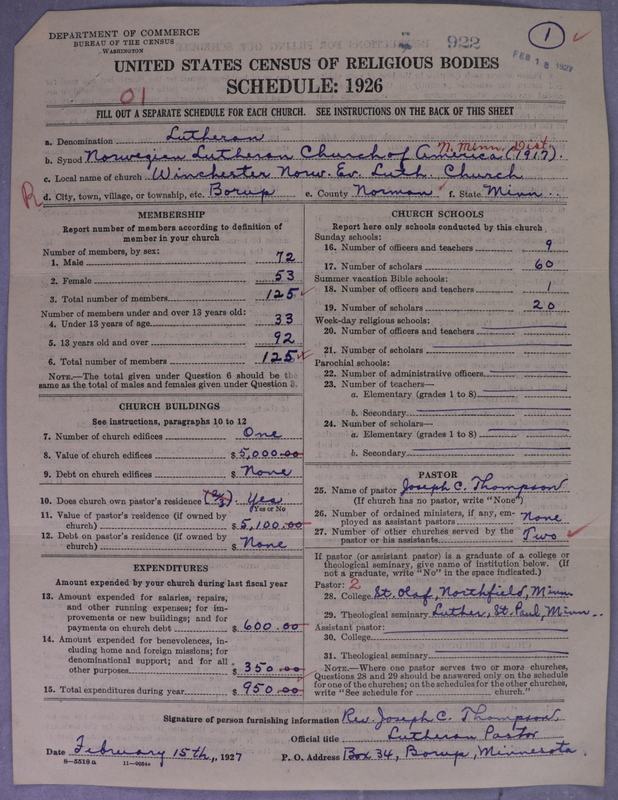 DEPARTMENT OF COMMERCE
BUREAU OF THE CENSUS
WASHINGTON
922
1
FEB 18 1927
UNITED STATES CENSUS OF RELIGIOUS BODIES
SCHEDULE: 1926
01
FILL OUT A SEPARATE SCHEDULE FOR EACH CHURCH. SEE INSTRUCTIONS ON THE BACK OF THIS SHEET
a. Denomination Lutheran
N. Minn. Dist.
b. Synod Norwegian Lutheran Church of America (1917).
c. Local name of church Winchester Norw. Ev. Luth. Church
R
d. City, town, village, or township, etc. Borup e. County Norman f. State Minn.
MEMBERSHIP
Report number of members according to definition of
member in your church
Number of members, by sex:
1. Male 72
2. Female 53
3. Total number of members 125
Number of members under and over 13 years old:
4. Under 13 years of age 33
5. 13 years old and over 92
6. Total number of members 125
NOTE.—The total given under Question 6 should be the
same as the total of males and females given under Question 3.
CHURCH BUILDINGS
See instructions, paragraphs 10 to 12
7. Number of church edifices One
8. Value of church edifices $ 5,000.00
9. Debt on church edifices $ None
10. Does church own pastor's residence (2/3) Yes
(Yes or No
11. Value of pastor's residence (if owned by
church) $ 5,100.00
12. Debt on pastor's residence (if owned by
church) $ None
EXPENDITURES
Amount expended by your church during last fiscal year
13. Amount expended for salaries, repairs,
and other running expenses; for im-
provements or new buildings; and for
payments on church debt $ 600.00
14. Amount expended for benevolences, in-
cluding home and foreign missions; for
denominational support; and for all
other purposes $ 350.00
15. Total expenditures during year $ 950.00
CHURCH SCHOOLS
Report here only schools conducted by this church
Sunday schools:
16. Number of officers and teachers 9
17. Number of scholars 60
Summer vacation Bible schools:
18. Number of officers and teachers 1
19. Number of scholars 20
Week-day religious schools:
20. Number of officers and teachers
21. Number of scholars
Parochial schools:
22. Number of administrative officers
23. Number of teachers—
a. Elementary (grades 1 to 8)
b. Secondary
24. Number of scholars—
a. Elementary (grades 1 to 8)
b. Secondary
PASTOR
25. Name of pastor Joseph C. Thompson
(If church has no pastor, write "None")
26. Number of ordained ministers, if any, em-
ployed as assistant pastors none
27. Number of other churches served by the
pastor or his assistants Two
If pastor (or assistant pastor) is a graduate of a college or
theological seminary, give name of institution below. (If
not a graduate, write "No" in the space indicated.)
Pastor: 2
28. College St. Olaf, Northfield, Minn
29. Theological seminary Luther, St. Paul, Minn.
Assistant pastor:
30. College
31. Theological seminary
NOTE.—Where one pastor serves two or more churches,
Questions 28 and 29 should be answered only on the schedule
for one of the churches; on the schedules for the other churches,
write "See schedule for church."
Signature of person furnishing information Rev. Joseph C. Thompson
Official title Lutheran Pastor
Date February 15th, 1927 P. O. Address Box 34, Borup, Minnesota.
8—5518a